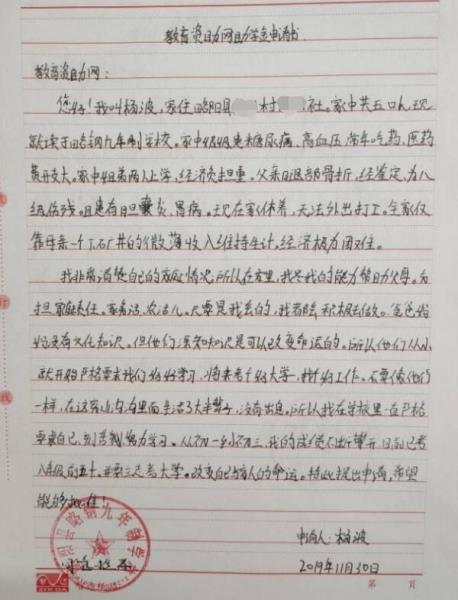 教育资助网助学金申请书
教育资助网：
您好！我叫杨波，家住略阳县 村 社。家中共五口人，现
就读于略钢九年制学校。家中奶奶患糖尿病、高血压，常年吃药，医药
费开支大。家中姐弟两人上学，经济负担重。父亲因腿部骨折，经鉴定，为八
级伤残，且患有胆囊炎、胃病。现在家休养，无法外出打工。全家仅
靠母亲一个人 的微薄收入维持生计，经济极为困难。
我非常清楚自己的家庭情况，所以在家里，我尽我的能力帮助父母。分
担家庭责任，家务活、农活儿，只要是我会的，我都会积极去做。爸爸妈
妈没有文化知识，但他们深知知识是可以改变命运的。所以他们从小
就开始严格要求我们好好学习，将来考个好大学，找个好工作。不要像他们
一样，在这穷山沟沟里面生活了大半辈子，没有出息。所以我在学校里一直严格
要求自己，刻苦努力学习。从初一到初三，我的成绩不断攀升，目前已考
年级前五十，并立志考大学。改变自己与家人的命运。特此提出申请，希望
能够批准！
申请人：杨波
2019年11月30日
略钢九年制学校
第 页